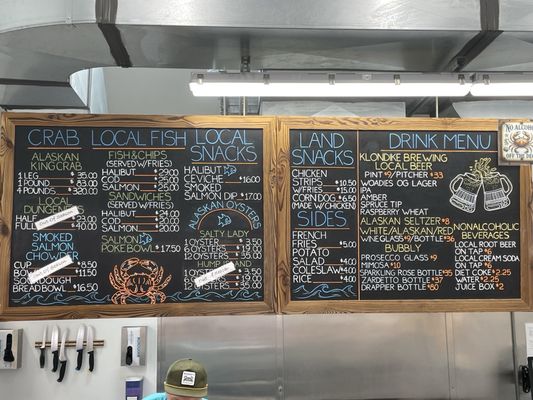 CRAB
ALASKAN
KING CRAB
1 LEG $35.00
1 POUND $83.00
4 POUNDS $320.00
LOCAL
DUNGE
HALF $23.00
FULL $40.00
SMOKED
SALMON
CHOWDER
CUP $8.50
BOWL $11.50
SOURDOUGH
BREADBOWL $16.50
LOCAL FISH
FISH & CHIPS
(SERVED W/FRIES)
HALIBUT $29.00
COD $24.00
SALMON $25.00
SANDWICHES
(SERVED W/FRIES)
HALIBUT $24.00
COD
SALMON $20.00
SALMON
POKE BOWL $17.50
LOCAL
SNACKS
HALIBUT
CEVICHE $16.00
SMOKED
SALMON DIP $17.00
ALASKAN OYSTERS
SALTY LADY
1 OYSTER $3.50
12 OYSTERS $35.00
1 OYSTER $3.50
12 OYSTERS $35.00
LAND
SNACKS
CHICKEN
STRIPS $10.50
W/FRIES $15.00
CORN DOG $6.50
(MADE W/CHICKEN)
SIDES
FRENCH
FRIES $5.00
POTATO
SALAD $4.00
COLESLAW $4.00
RICE $4.00
DRINK MENU
KLONDIKE BREWING
LOCAL BEER
PINT $9/PITCHER $33
WOADIES OG LAGER
IPA
AMBER
SPRUCE TIP
RASPBERRY WHEAT
ALASKAN SELTZER $8
WHITE/ALASKAN/RED
WINE GLASS $9/BOTTLE $36
BUBBLY
PROSECCO GLASS $9
MIMOSA $10
SPARKLING ROSE BOTTLE $35
ZARDETTO BOTTLE $37
DRAPPIER BOTTLE $80
NONALCOHOLIC
BEVERAGES
LOCAL ROOT BEER
ON TAP $5
LOCAL CREAM SODA
ON TAP $6
DIET COKE $2.25
WATER $2.25
JUICE BOX $2
NO ALCOHOL
OFF THE DECK